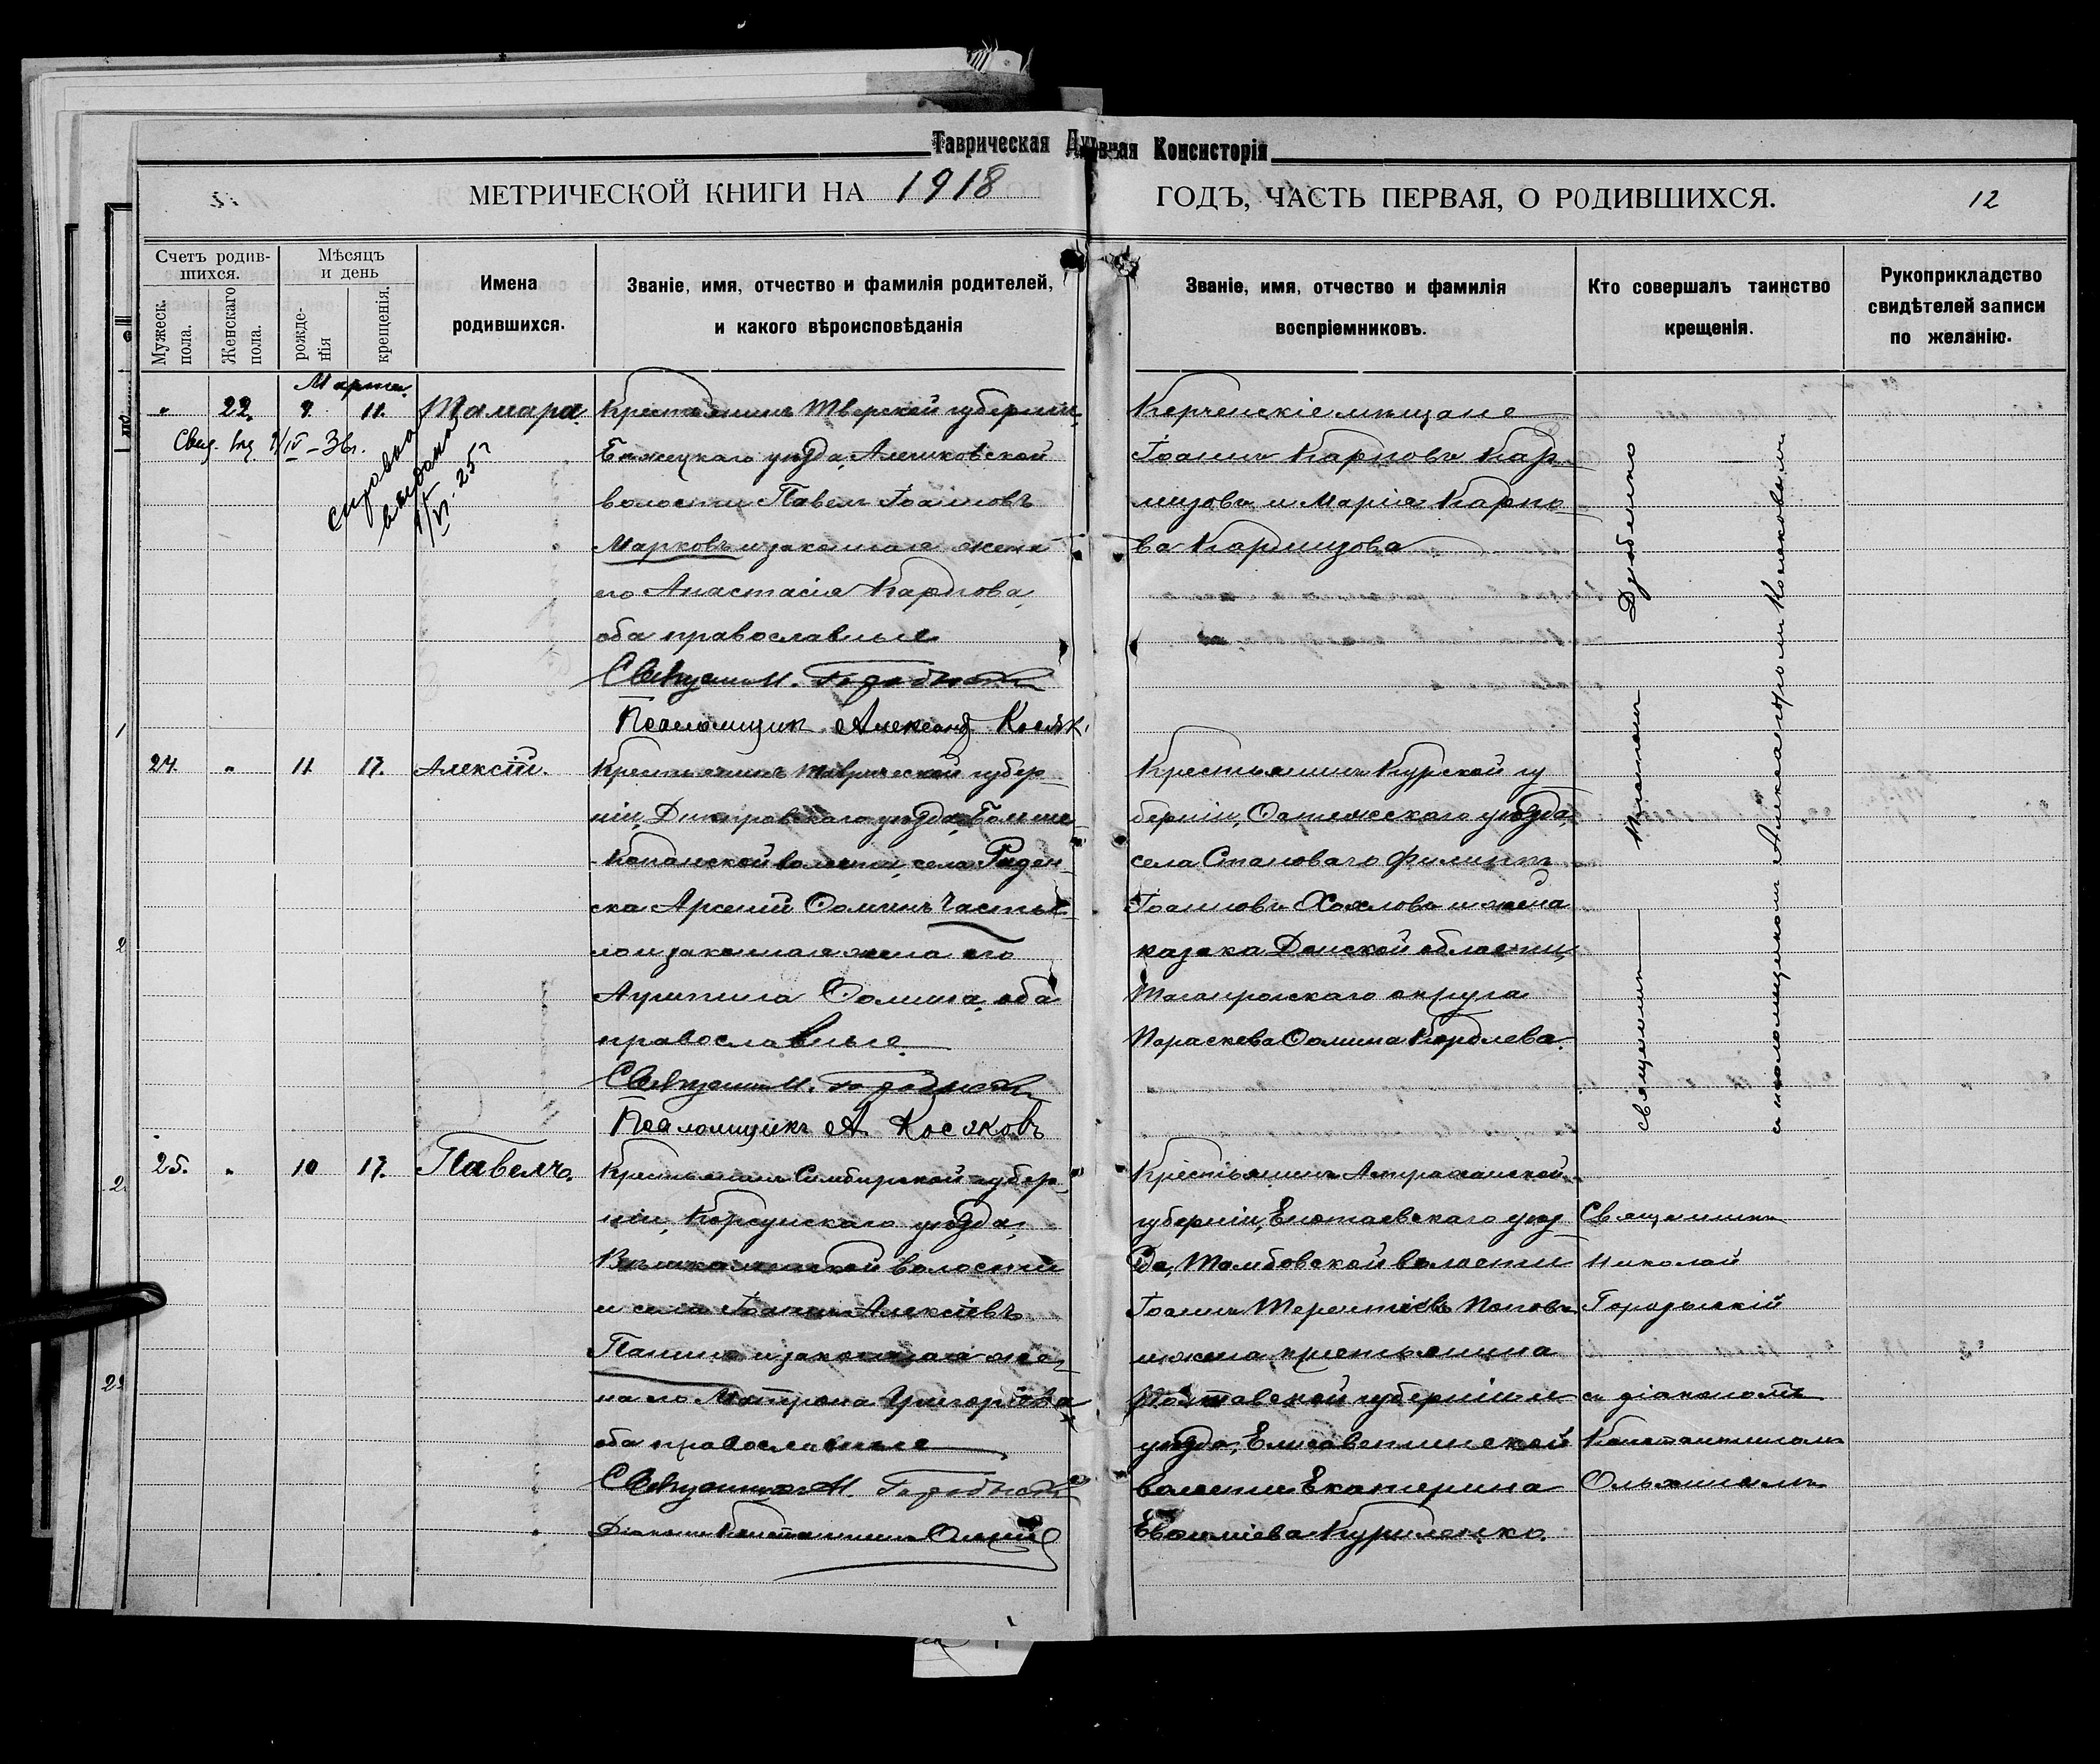 Таврическая Духовная Консисторія
МЕТРИЧЕСКОЙ КНИГИ НА 1918 ГОДЪ, ЧАСТЬ ПЕРВАЯ, О РОДИВШИХСЯ. 12
Счетъ родившихся.
Мужеск. пола.
Женскаго пола.
Мѣсяцъ и день
рожденія
крещенія.
Имена родившихся.
Званіе, имя, отчество и фамилія родителей,
и какого вѣроисповѣданія
Званіе, имя, отчество и фамилія
воспріемниковъ.
Кто совершалъ таинство
крещенія.
Рукоприкладство
свидѣтелей записи
по желанію.
Марта.
" 22. 9. 11. Тамара.
справка
выдана
25 г
Крестьянинъ Тверской губерніи,
Бѣжецкаго уѣзда, Алешковской
волости Павелъ Іоанновъ
Марковъ и законная жена
его Анастасія Карпова,
оба православные
Священникъ Н. Городыскій
Псаломщикъ Александ. Косяк.
Керченскіе мѣщане
Іоаннъ Карповъ Кар
мизовъ и Марія Карпо
ва Кармизова
Священникъ Платонъ Дзюбенко
съ псаломщикомъ Александромъ Косяковымъ
24. " 11. 17. Алексѣй.
Крестьянинъ Таврической губер
ніи, Днѣпровскаго уѣзда, Больше
Копанской волости, села Раден
ска Арсеній Ѳоминъ Часты
законная жена его
Агрипина Ѳомина, оба
православные.
Священникъ Н. Городыскій
Псаломщикъ А. Косяковъ
Крестьянинъ Курской гу
берніи, уѣзда,
села Становаго Филиппъ
Іоанновъ Хохловъ и жена
казака Донской области,
Таганрогскаго округа
Параскева Ѳомина Королева.
25. " 10 17. Павелъ.
Крестьянинъ Симбирской губер
ніи, Корсунскаго уѣзда,
волости
и села Іоаннъ Алексѣевъ
Панинъ и законная же
на его Матрона Григорьева
оба православные
Священникъ Н. Городыскій
Діаконъ Константинъ
Крестьянинъ Астраханской
губерніи, Енотаевскаго уѣз
да, Тамбовской волости
Іоаннъ Терентіевъ Поповъ
и жена крестьянина
Полтавской губерніи и
уѣзда, Елисаветинской
волости Екатерина
Евѳиміева Куриленко.
Священникъ
Николай
Городыскій
съ діакономъ
Константиномъ
Ольхинымъ